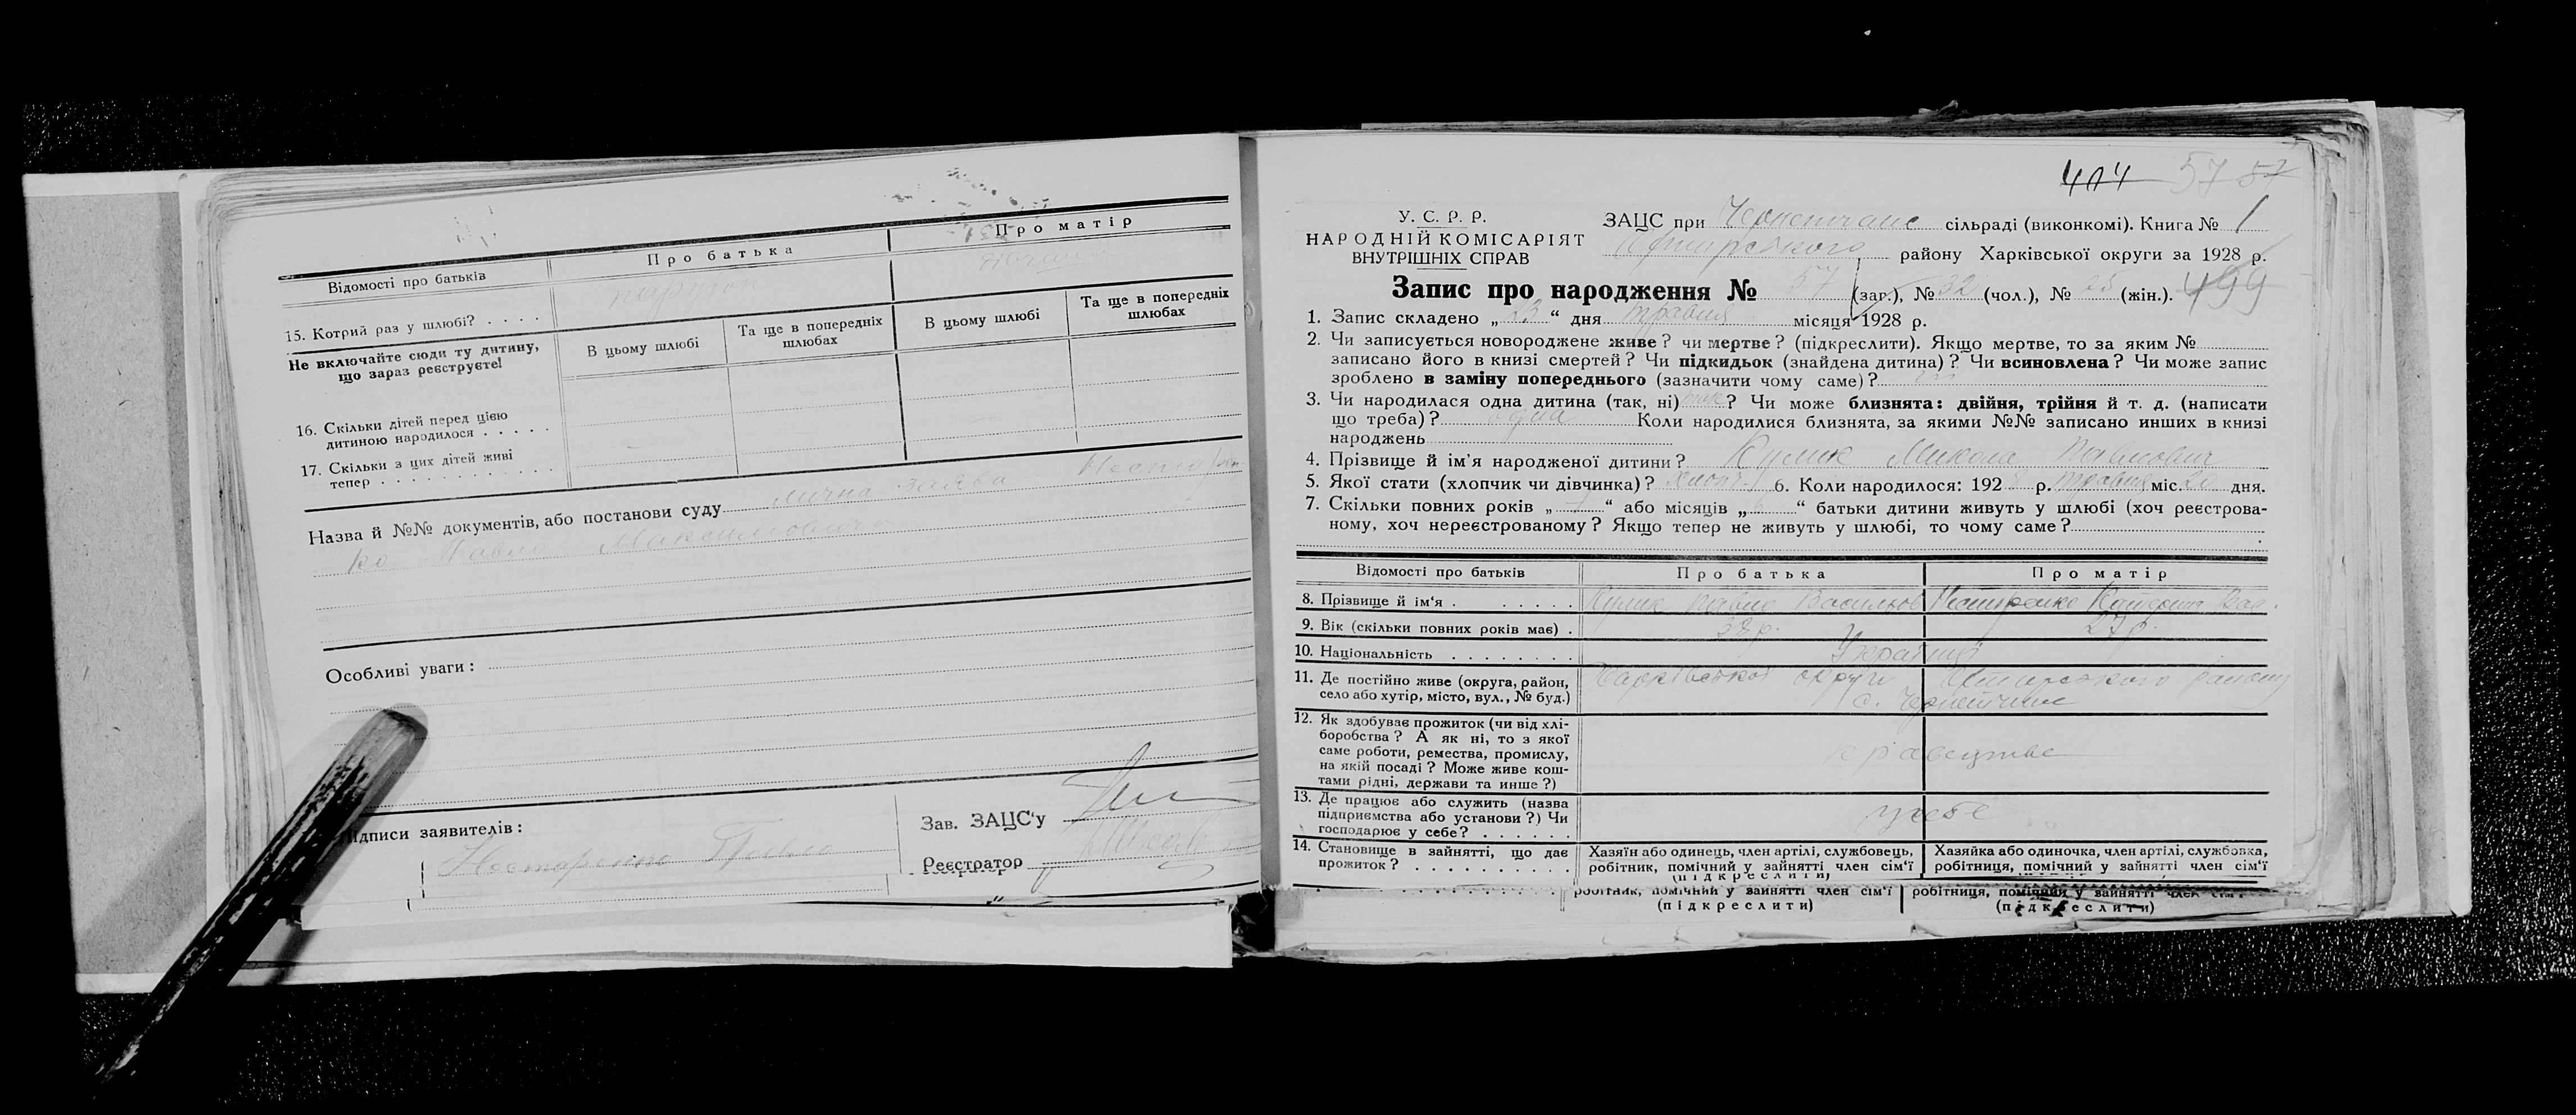 Відомості про батьків
Про батька
Про матір
15. Котрий раз у шлюбі? . . . .
Не включайте сюди ту дитину, що зараз реєструєте!
В цьому шлюбі
Та ще в попередніх шлюбах
В цьому шлюбі
Та ще в попередніх шлюбах
16. Скільки дітей перед цією
дитиною народилося . . . . .
17. Скільки з цих дітей живі
тепер . . . . . . . . . . .
Назва й №№ документів, або постанови суду лична заява
ко Павла Максимовича
Особливі уваги:
ідписи заявителів:
Нестеренко Павло
Зав. ЗАЦС'у
Реєстратор
404 57 57
У. С. Р. Р.
НАРОДНІЙ КОМІСАРІЯТ
ВНУТРІШНІХ СПРАВ
ЗАЦС при сільраді (виконкомі). Книга № 1
району Харківської округи за 1928 р.
Запис про народження № 57 (заг.), № 32 (чол.), № 25 (жін.). 499
1. Запис складено „ 23 “ дня травня місяця 1928 р.
2. Чи записується новороджене живе? чи мертве? (підкреслити). Якщо мертве, то за яким №
записано його в книзі смертей? Чи підкидьок (знайдена дитина)? Чи всиновлена? Чи може запис
зроблено в заміну попереднього (зазначити чому саме)?
3. Чи народилася одна дитина (так, ні) так? Чи може близнята: двійня, трійня й т. д. (написати
що треба)? одна Коли народилися близнята, за якими №№ записано инших в книзі
народжень
4. Прізвище й ім'я народженої дитини? Кулик Микола Павлович
5. Якої стати (хлопчик чи дівчинка)? хлопч. 6. Коли народилося: 1928 р. травня міс. дня.
7. Скільки повних років „ “ або місяців „ “ батьки дитини живуть у шлюбі (хоч реєстрова-
ному, хоч нереєстрованому? Якщо тепер не живуть у шлюбі, то чому саме?
Відомості про батьків
Про батька
Про матір
8. Прізвище й ім'я . . . . . . . Кулик Павло Васильов Нестеренко
9. Вік (скільки повних років має) . 27 р.
10. Національність . . . . . . . . Українці
11. Де постійно живе (округа, район,
село або хутір, місто, вул., № буд.)
Харківської округи району
12. Як здобуває прожиток (чи від хлі-
боробства? А як ні, то з якої
саме роботи, ремества, промислу,
на якій посаді? Може живе кош-
тами рідні, держави та инше?)
кравецтво
13. Де працює або служить (назва
підприємства або установи?) Чи
господарює у себе? . . . . . .
у себе
14. Становище в зайнятті, що дає
прожиток? . . . . . . . . . .
Хазяїн або одинець, член артілі, службовець,
робітник, помічний у зайнятті член сім'ї
(підкреслити)
Хазяйка або одиночка, член артілі, службовка,
робітниця, помічний у зайнятті член сім'ї
робітник, помічний у зайнятті член сім'ї
(підкреслити)
робітниця, помічний у зайнятті член сім'ї
(підкреслити)